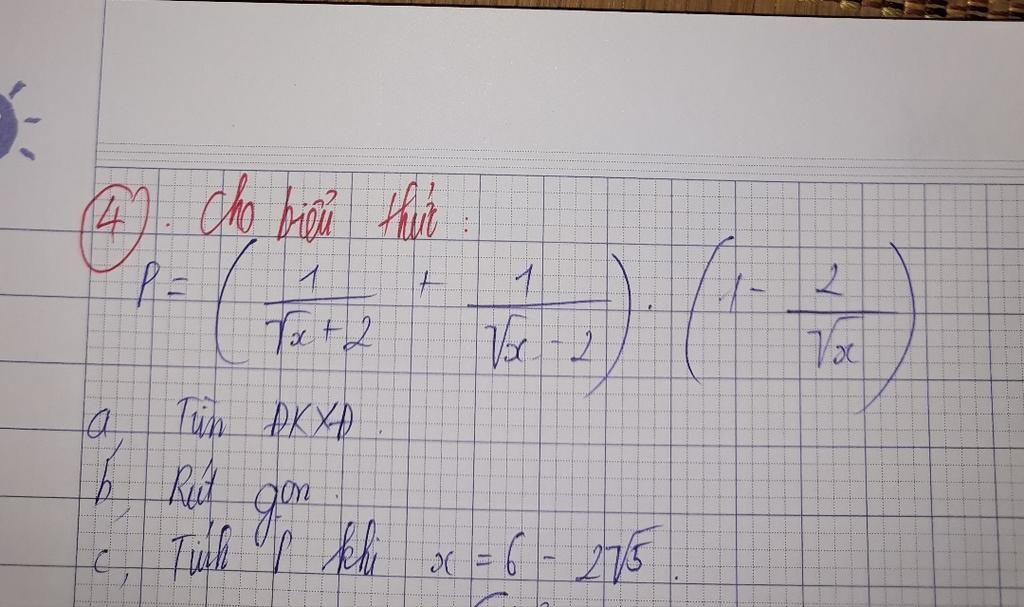 4. Cho biểu thức:
P = (1/(√x + 2) + 1/(√x - 2)) . (1 - 2/√x)
a, Tìm ĐKXĐ.
b, Rút gọn.
c, Tính P khi x = 6 - 2√5.